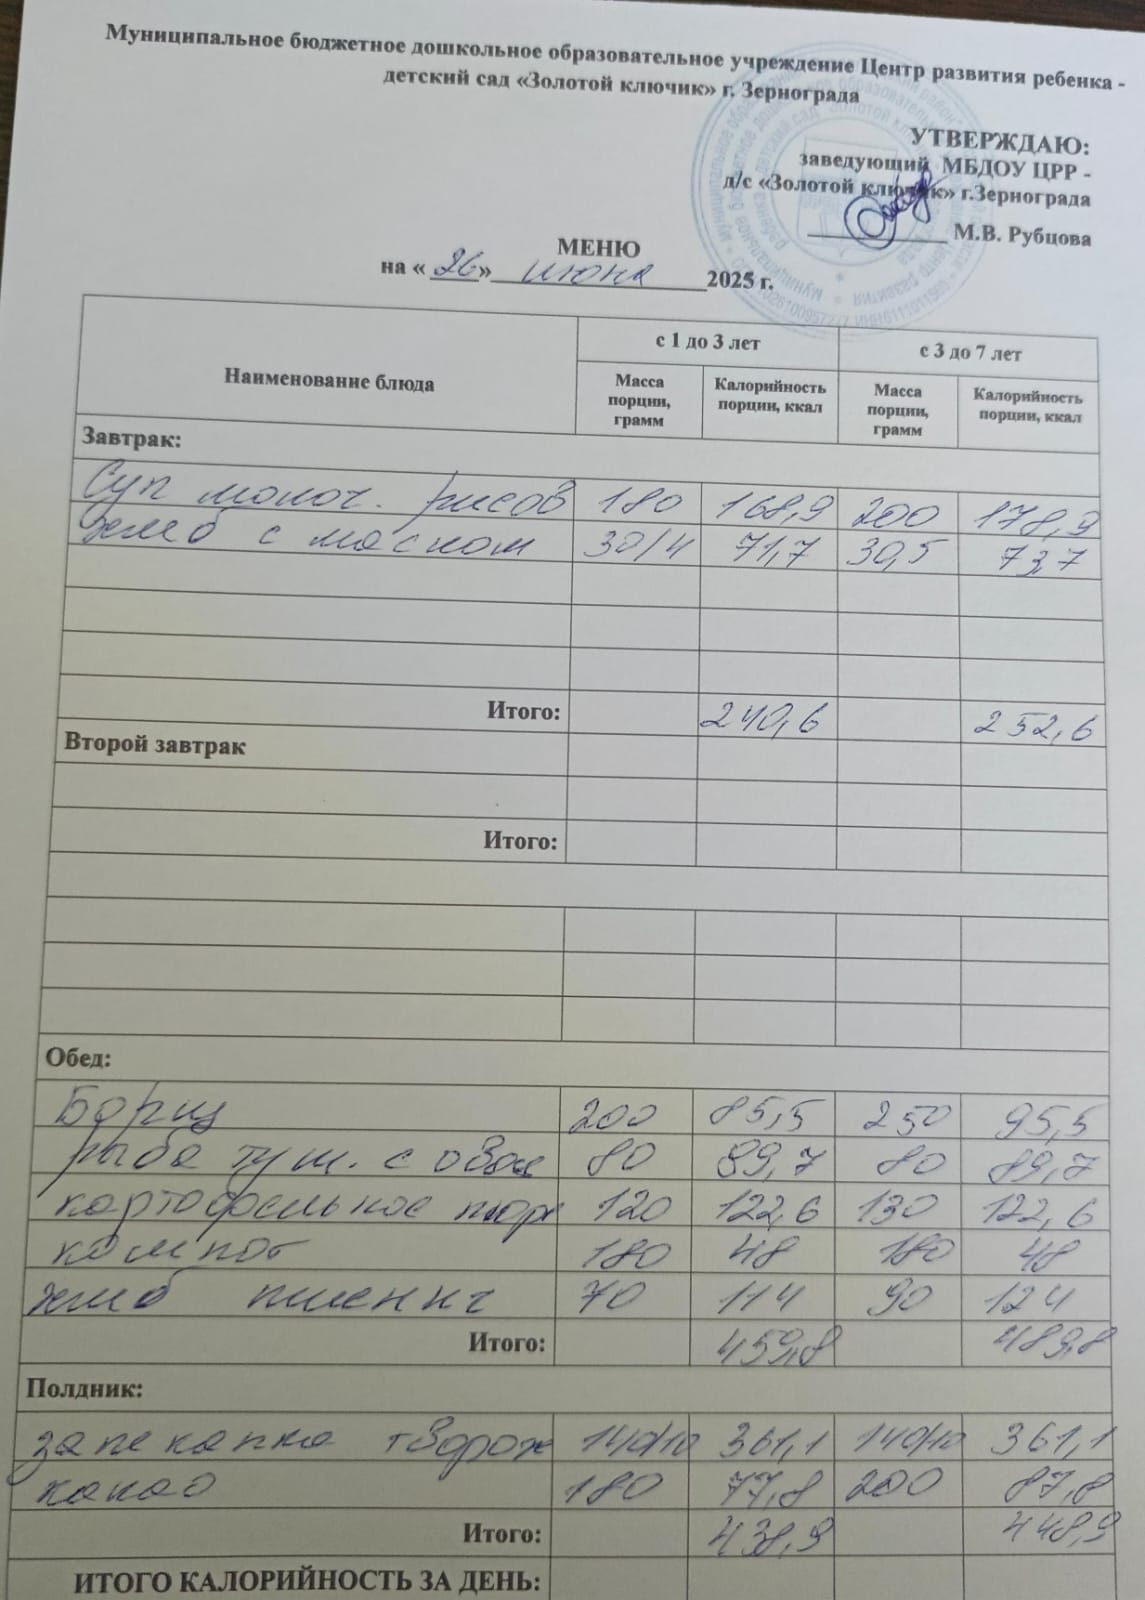 Муниципальное бюджетное дошкольное образовательное учреждение Центр развития ребенка -
детский сад «Золотой ключик» г. Зернограда
УТВЕРЖДАЮ:
заведующий МБДОУ ЦРР -
д/с «Золотой ключик» г.Зернограда
М.В. Рубцова
МЕНЮ
на «26» июня 2025 г.
Наименование блюда
с 1 до 3 лет
с 3 до 7 лет
Масса порции, грамм
Калорийность порции, ккал
Масса порции, грамм
Калорийность порции, ккал
Завтрак:
Суп молоч. рисов 180 168,9 200 178,9
хлеб с маслом 30/4 71,7 30,5 73,7
Итого: 240,6 252,6
Второй завтрак
Итого:
Обед:
Борщ 200 85,5 250 95,5
рыба туш. с овощ 80 89,7 80 89,7
картофельное пюре 120 122,6 130 122,6
компот 180 48 180 48
хлеб пшенич 70 114 90 124
Итого: 459,8 489,8
Полдник:
запеканка творож 140/10 361,1 140/10 361,1
какао 180 77,8 200 87,8
Итого: 438,9 448,9
ИТОГО КАЛОРИЙНОСТЬ ЗА ДЕНЬ: